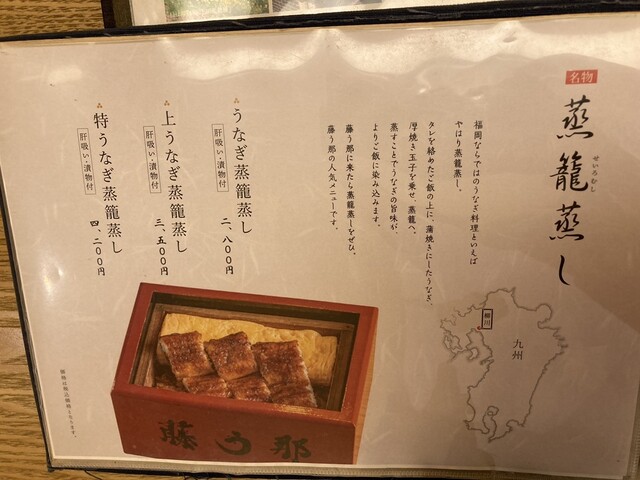 名物
蒸籠蒸し
せいろむし
福岡ならではのうなぎ料理といえば
やはり蒸籠蒸し。
タレを絡めたご飯の上に、蒲焼きにしたうなぎ、
厚焼き玉子を乗せ、蒸籠へ。
蒸すことでうなぎの旨味が、
よりご飯に染み込みます。
藤う那に来たら蒸籠蒸しをぜひ。
藤う那の人気メニューです。
うなぎ蒸籠蒸し
肝吸い・漬物付
二、八〇〇円
上うなぎ蒸籠蒸し
肝吸い・漬物付
三、五〇〇円
特うなぎ蒸籠蒸し
肝吸い・漬物付
四、二〇〇円
九州
柳川
藤う那
価格は税込価格となります。